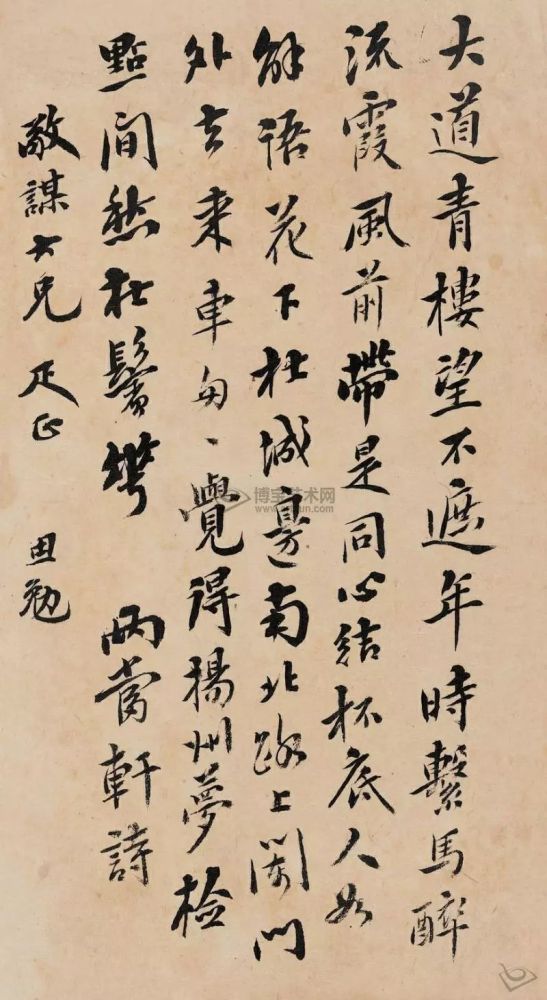 大道青樓望不遮年時繫馬醉
流霞風前帶是同心結杯底人如
解語花下杜城邊南北路上闌門
外去來車匆々覺得揚州夢檢
點閒愁在鬢華 兩當軒詩
敬謀大兄 疋正 田勉
博宝艺术网